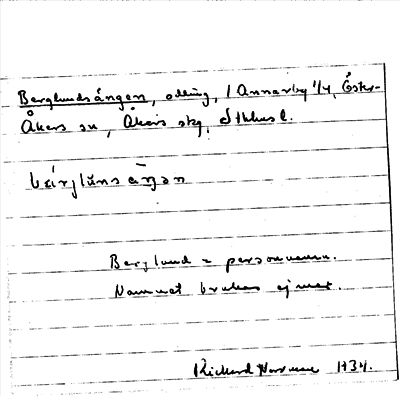 Berglundsängen, odling, 1 Annarby 1/4, Öster-
Åkers sn, Åkers skg, Sthlms l.
Berglund = personnamn.
Namnet brukas ej mer.
Richard 1934.